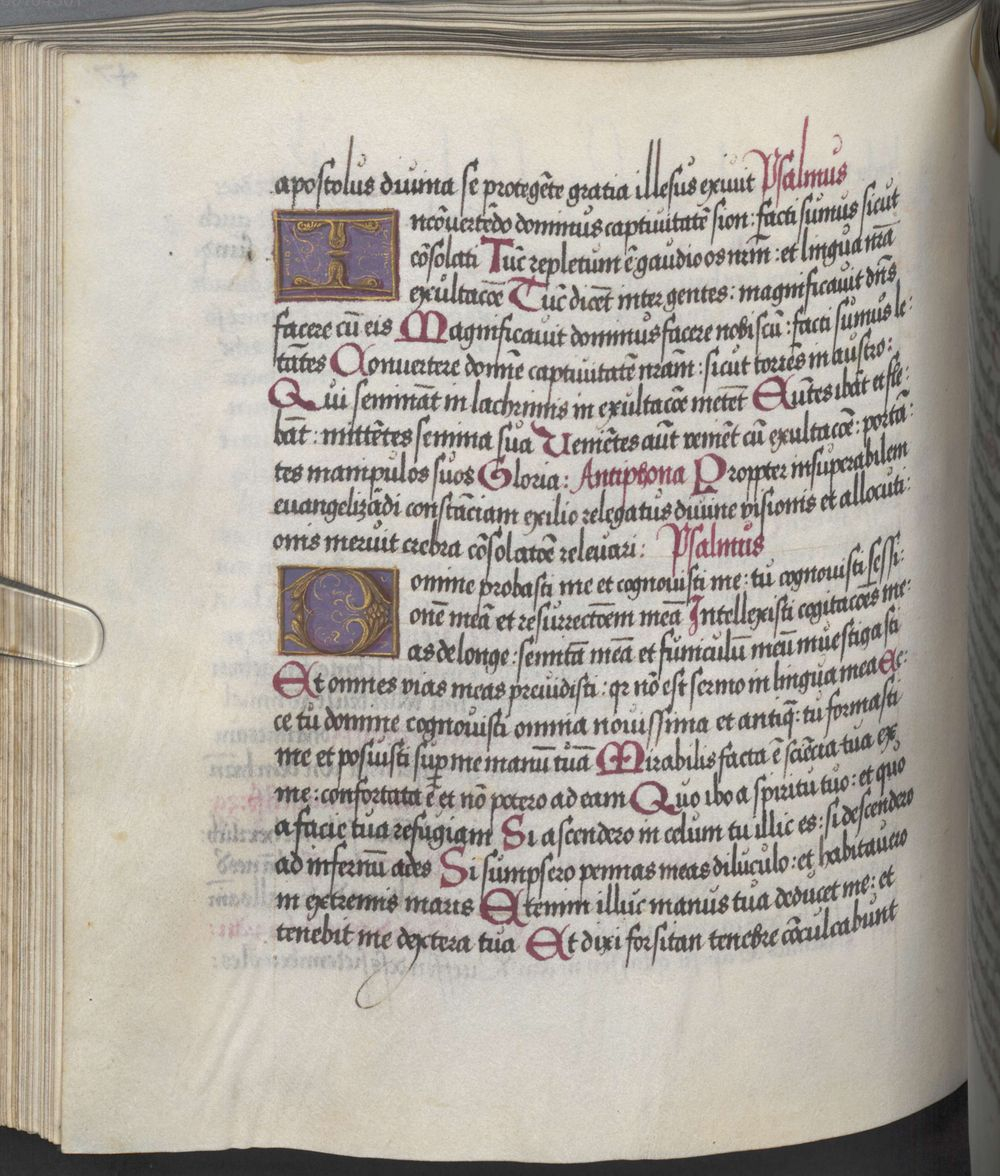 apostolus diuina se protegēte gratia illesus exiuit Psalmus
Incōuertēdo dominus captiuitatē sion : facti sumus sicut
cōsolati Tūc repletum ē gaudio os nrm̄ : et lingua nrā
exultacōe Tūc dicēt inter gentes : magnificauit dn̄s
facere cū eis Magnificauit dominus facere nobiscū : facti sumus le:
tātes Conuertere domīe captiuitatē nrām : sicut torrēs in austro :
Qui semināt in lachrimis in exultacōe metēt Eūtes ibāt et flē:
bāt : mittētes semina sua Veniētes aūt veniēt cū exultacōe : portā:
tes manipulos suos Gloria : Antiphona Propter insuperabilem
euangelizādi constāciam exilio relegatus diuine visionis et allocuti:
onis meruit crebra cōsolatōe releuari : Psalmus
Domine probasti me et cognouisti me : tu cognouisti sessi:
onē meā et resurrectōem meā Intellexisti cogitacōes me:
as de longe : semitā meā et funiculū meū inuestigasti
Et omnes vias meas preuidisti : qr nō est sermo in lingua mea Ec:
ce tu domine cognouisti omnia nouissima et antiq̄ : tu formasti
me et posuisti sup̄ me manū tuā Mirabilis facta ē sciēcia tua ex
me : confortata ē et nō potero ad eam Quo ibo a spiritu tuo : et quo
a facie tua refugiam Si ascendero in celum tu illic es : si descendero
ad infernū ades Si sumpsero pennas meas diluculo : et habitauero
in extremis maris Etenim illuc manus tua deducet me : et
tenebit me dextera tua Et dixi forsitan tenebre cōculcabunt